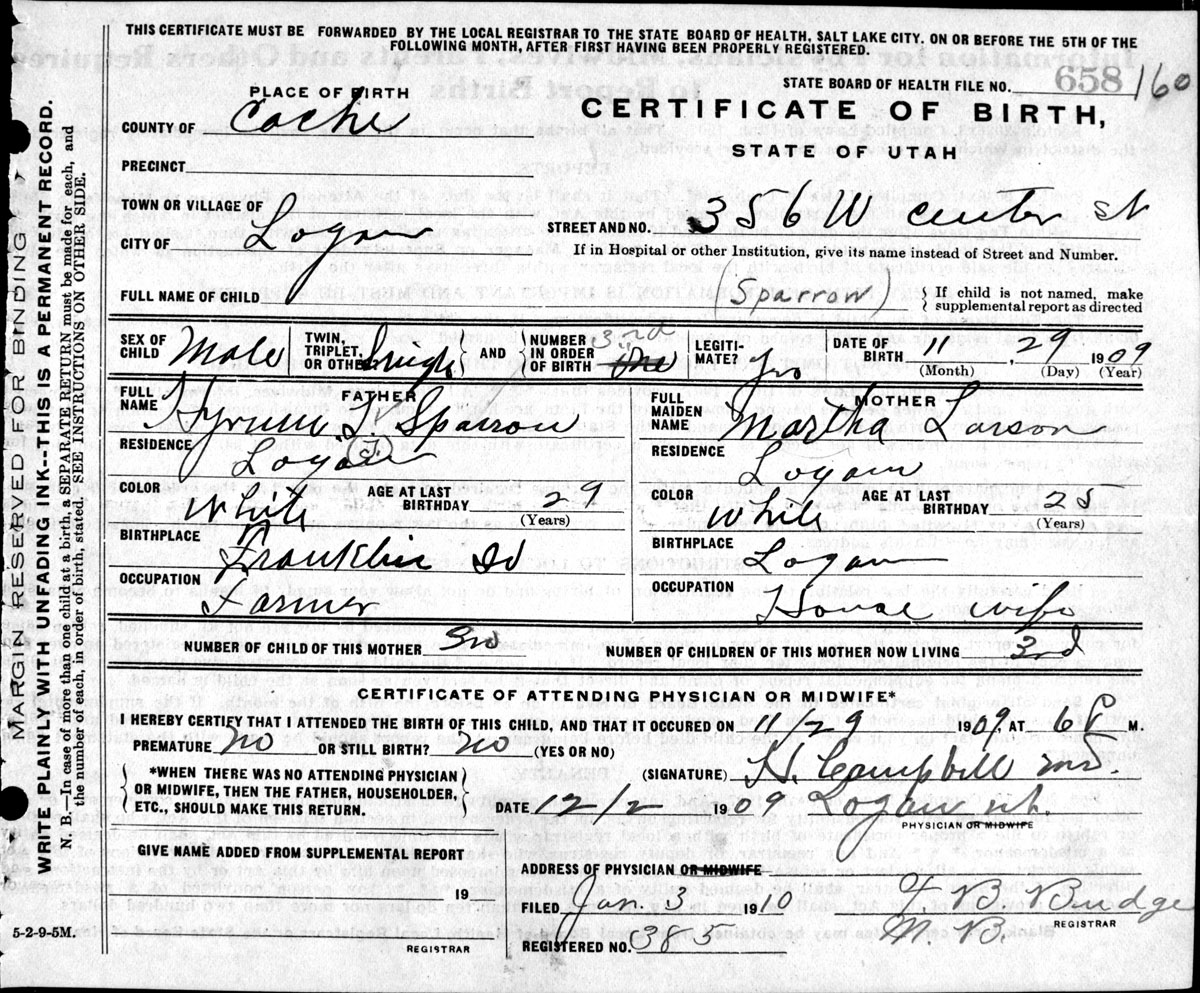 THIS CERTIFICATE MUST BE FORWARDED BY THE LOCAL REGISTRAR TO THE STATE BOARD OF HEALTH, SALT LAKE CITY. ON OR BEFORE THE 5TH OF THE
FOLLOWING MONTH, AFTER FIRST HAVING BEEN PROPERLY REGISTERED.
STATE BOARD OF HEALTH FILE NO. 658/60
PLACE OF BIRTH
CERTIFICATE OF BIRTH,
COUNTY OF Cache
STATE OF UTAH
PRECINCT
TOWN OR VILLAGE OF
STREET AND NO. 356 W Center st
CITY OF Logan
If in Hospital or other Institution, give its name instead of Street and Number.
FULL NAME OF CHILD (Sparrow) { If child is not named, make
supplemental report as directed
SEX OF CHILD Male
TWIN, TRIPLET, OR OTHER Single AND NUMBER IN ORDER OF BIRTH 3rd
LEGITI-MATE? Yes
DATE OF BIRTH 11 29 1909
(Month) (Day) (Year)
FATHER
FULL NAME Hyrum J Sparrow
(J.)
RESIDENCE Logan
COLOR White AGE AT LAST BIRTHDAY 29
(Years)
BIRTHPLACE Franklin Id
OCCUPATION Farmer
MOTHER
FULL MAIDEN NAME Martha Larson
RESIDENCE Logan
COLOR White AGE AT LAST BIRTHDAY 25
(Years)
BIRTHPLACE Logan
OCCUPATION House wife
NUMBER OF CHILD OF THIS MOTHER 3rd NUMBER OF CHILDREN OF THIS MOTHER NOW LIVING 3rd
CERTIFICATE OF ATTENDING PHYSICIAN OR MIDWIFE*
I HEREBY CERTIFY THAT I ATTENDED THE BIRTH OF THIS CHILD AND THAT IT OCCURED ON 11/29 1909. AT 6 P M.
PREMATURE no OR STILL BIRTH? no (YES OR NO)
{ *WHEN THERE WAS NO ATTENDING PHYSICIAN
OR MIDWIFE, THEN THE FATHER, HOUSEHOLDER,
ETC., SHOULD MAKE THIS RETURN. }
(SIGNATURE) H. Campbell MD.
DATE 12/2 1909 Logan ut.
PHYSICIAN OR MIDWIFE
GIVE NAME ADDED FROM SUPPLEMENTAL REPORT
19
REGISTRAR
ADDRESS OF PHYSICIAN OR MIDWIFE
FILED Jan. 3 1910 F B Budge
M. D.
REGISTRAR
REGISTERED NO. 383
5-2-9-5M.
MARGIN RESERVED FOR BINDING
WRITE PLAINLY WITH UNFADING INK--THIS IS A PERMANENT RECORD.
N. B.—In case of more than one child at a birth, a SEPARATE RETURN must be made for each, and
the number of each, in order of birth, stated. SEE INSTRUCTIONS ON OTHER SIDE.